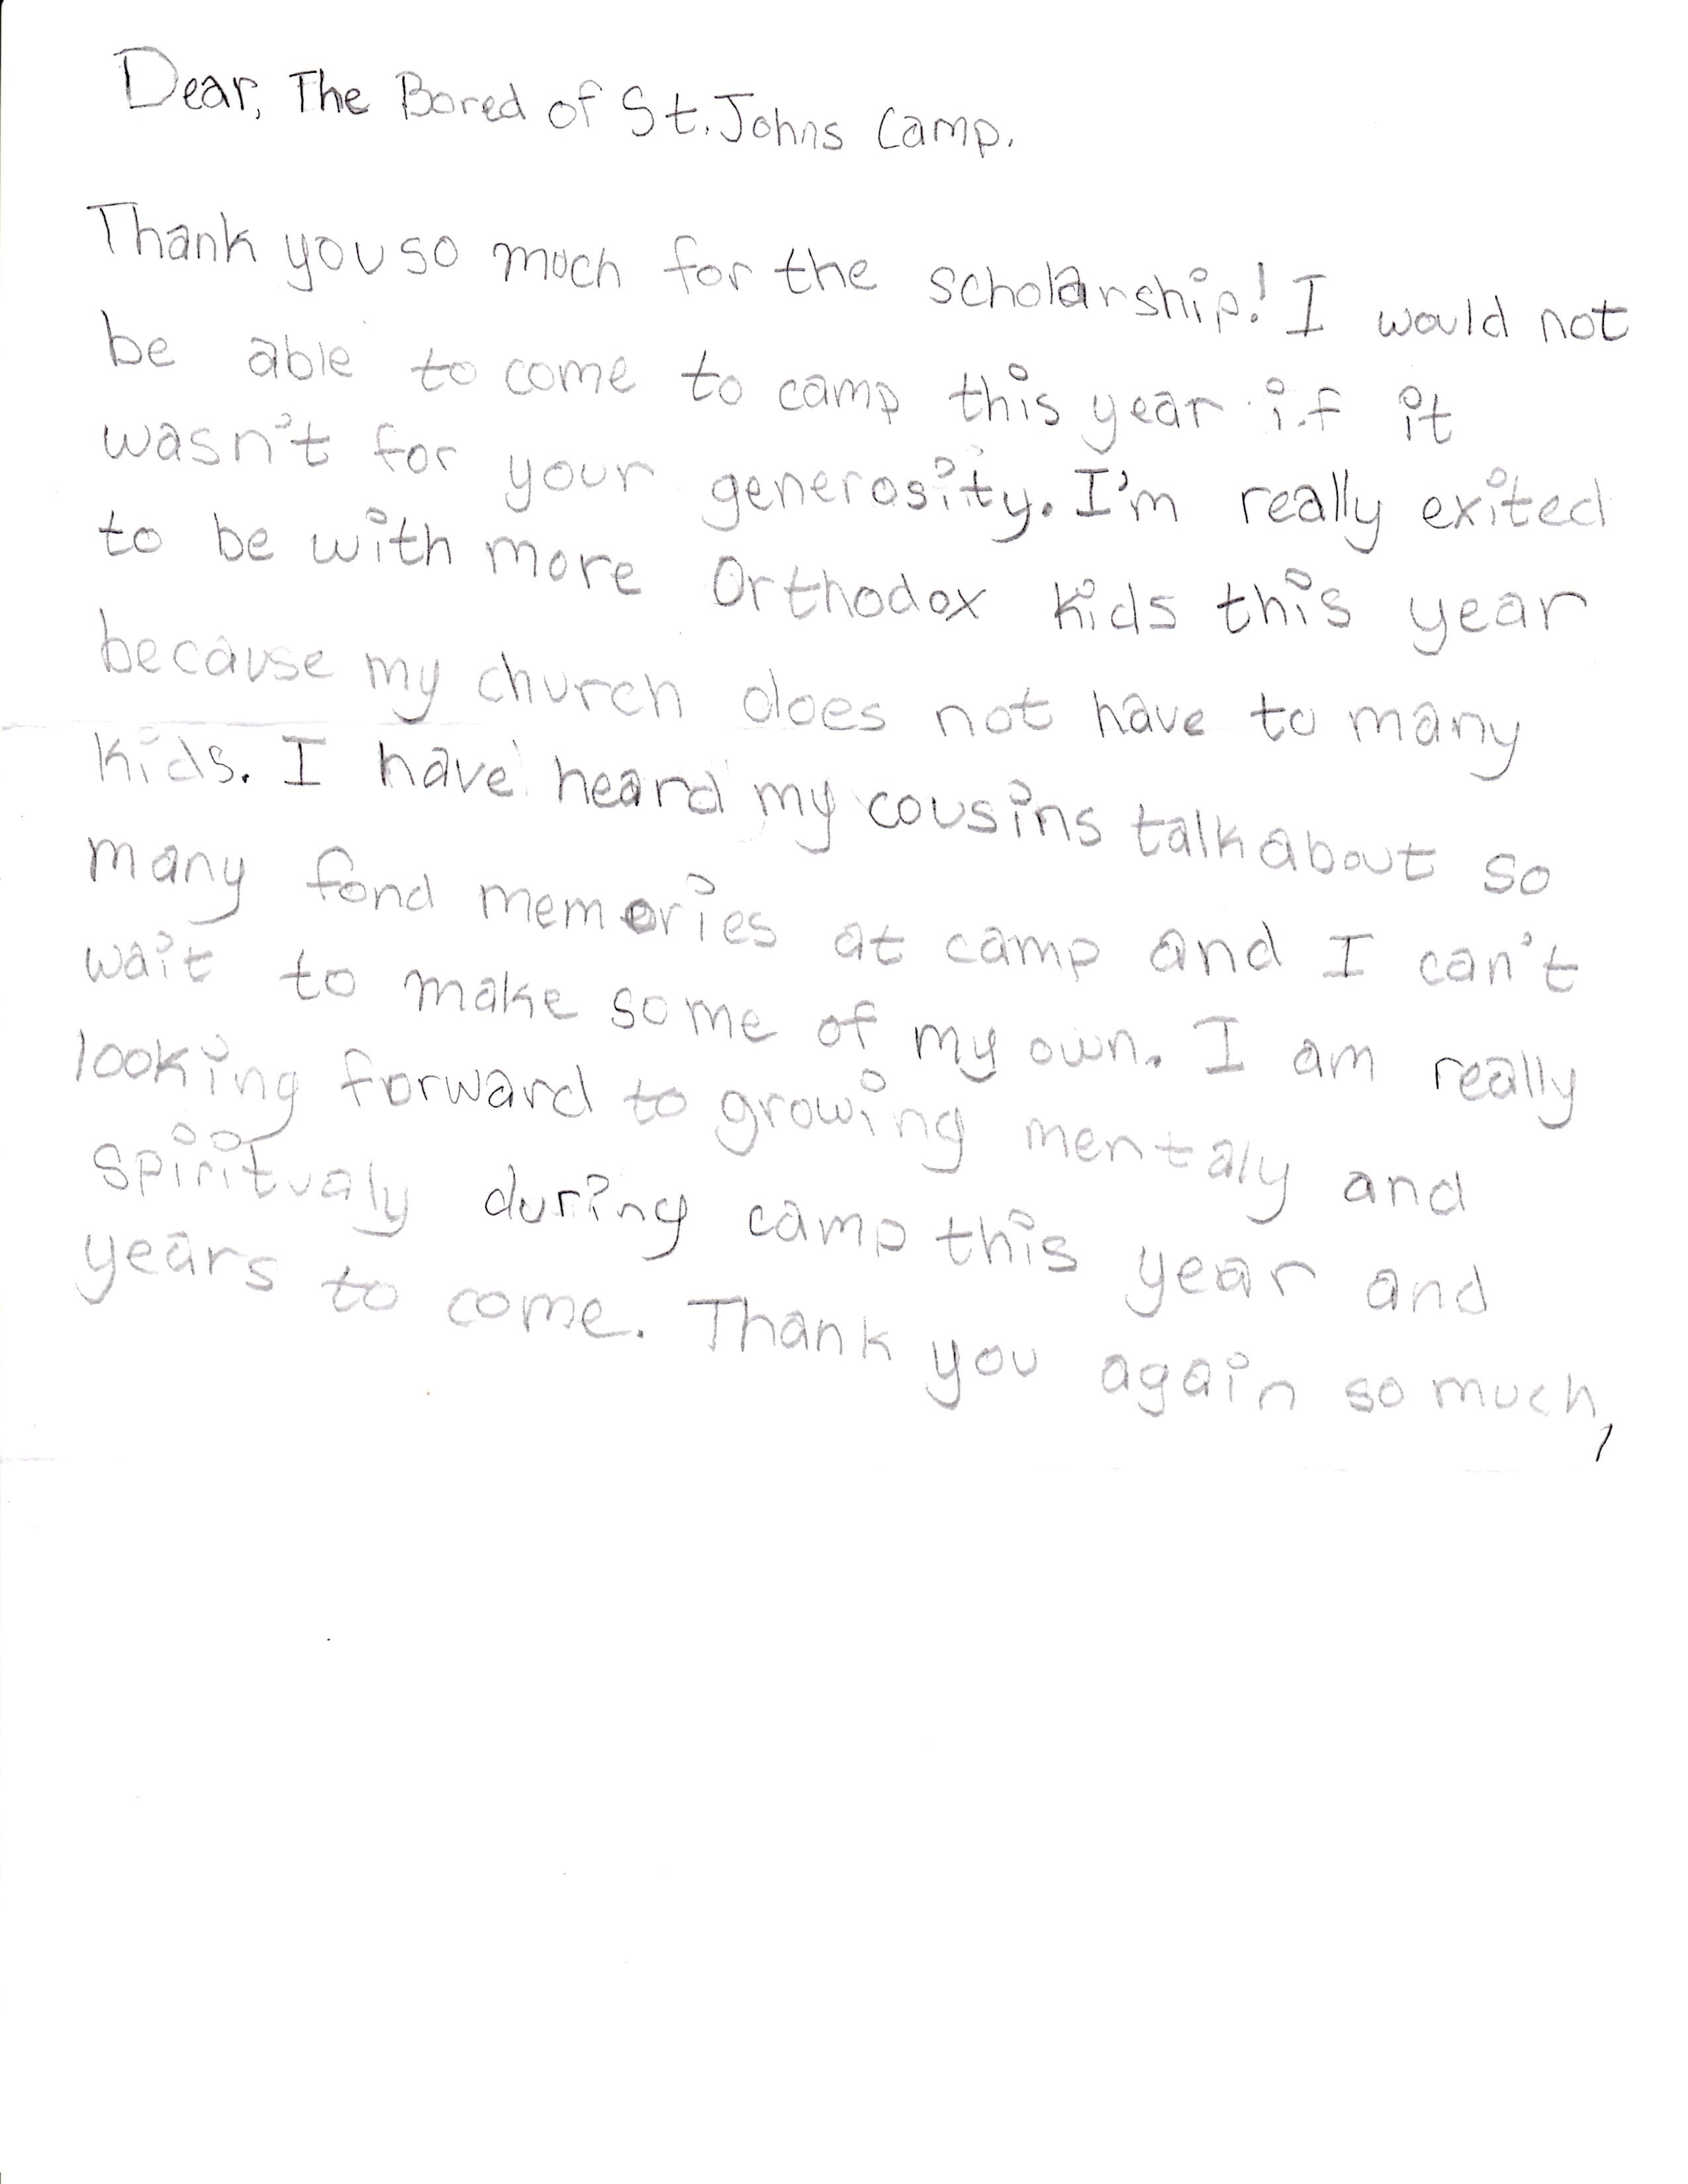 Dear, The Bored of St. Johns Camp.
Thank you so much for the scholarship! I would not
be able to come to camp this year if it
wasn't for your generosity. I'm really exited
to be with more Orthodox kids this year
because my church does not have to many
kids. I have heard my cousins talk about so
many fond memories at camp and I can't
wait to make some of my own. I am really
looking forward to growing mentaly and
spiritualy during camp this year and
years to come. Thank you again so much,